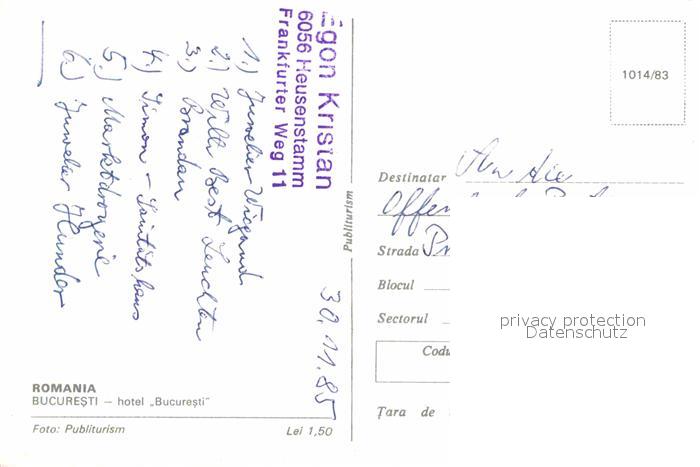 Egon Kristan
6056 Heusenstamm
Frankfurter Weg 11
1.) Juwelier Wiegand
2.) Willi Best Leuchten
3.) Brandau
4.) Simon - Sanitätshaus
5.) Marktdrogerie
6.) Juwelier Hunder
30.11.85
ROMANIA
BUCUREȘTI – hotel „București”
Foto: Publiturism
Lei 1,50
Publiturism
1014/83
Destinatar
Offen
Strada
Blocul
Sectorul
Codu
Țara de
privacy protection
Datenschutz